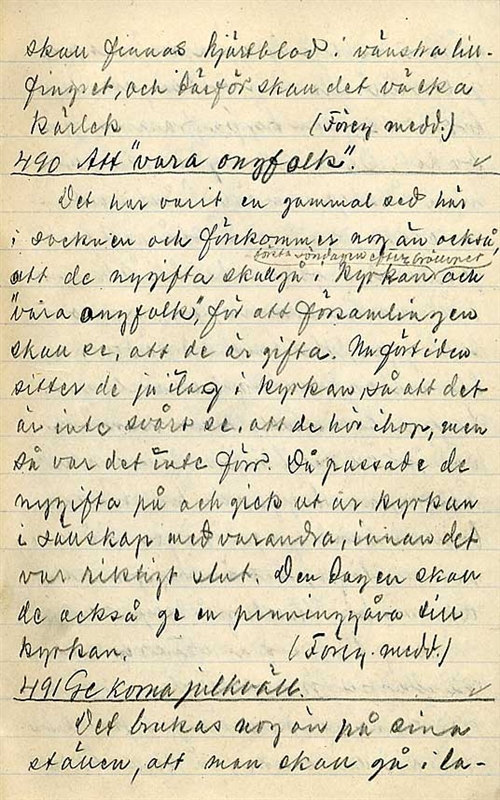 skall finnas hjärtblod i vänstra lill-
fingret, och därför skall det väcka
kärlek (Föreg. medd.)
490 Att "vara ongfolk".
Det har varit en gammal sed här
i socknen och förekommer nog än också,
första söndagen efter bröllopet
att de nygifta skall gå i kyrkan och
"vara ongfolk", för att församlingen
skall se, att de är gifta. Nu förtiden
sitter de ju ilag i kyrkan, så att det
är inte svårt se, att de hör ihop, men
så var det inte förr. Då passade de
nygifta på och gick ut ur kyrkan
i sällskap med varandra, innan det
var riktigt slut. Den dagen skall
de också ge en penninggåva till
kyrkan. (Föreg. medd.)
491 Ge korna julkväll.
Det brukas nog än på sina
ställen, att man skall gå i la-